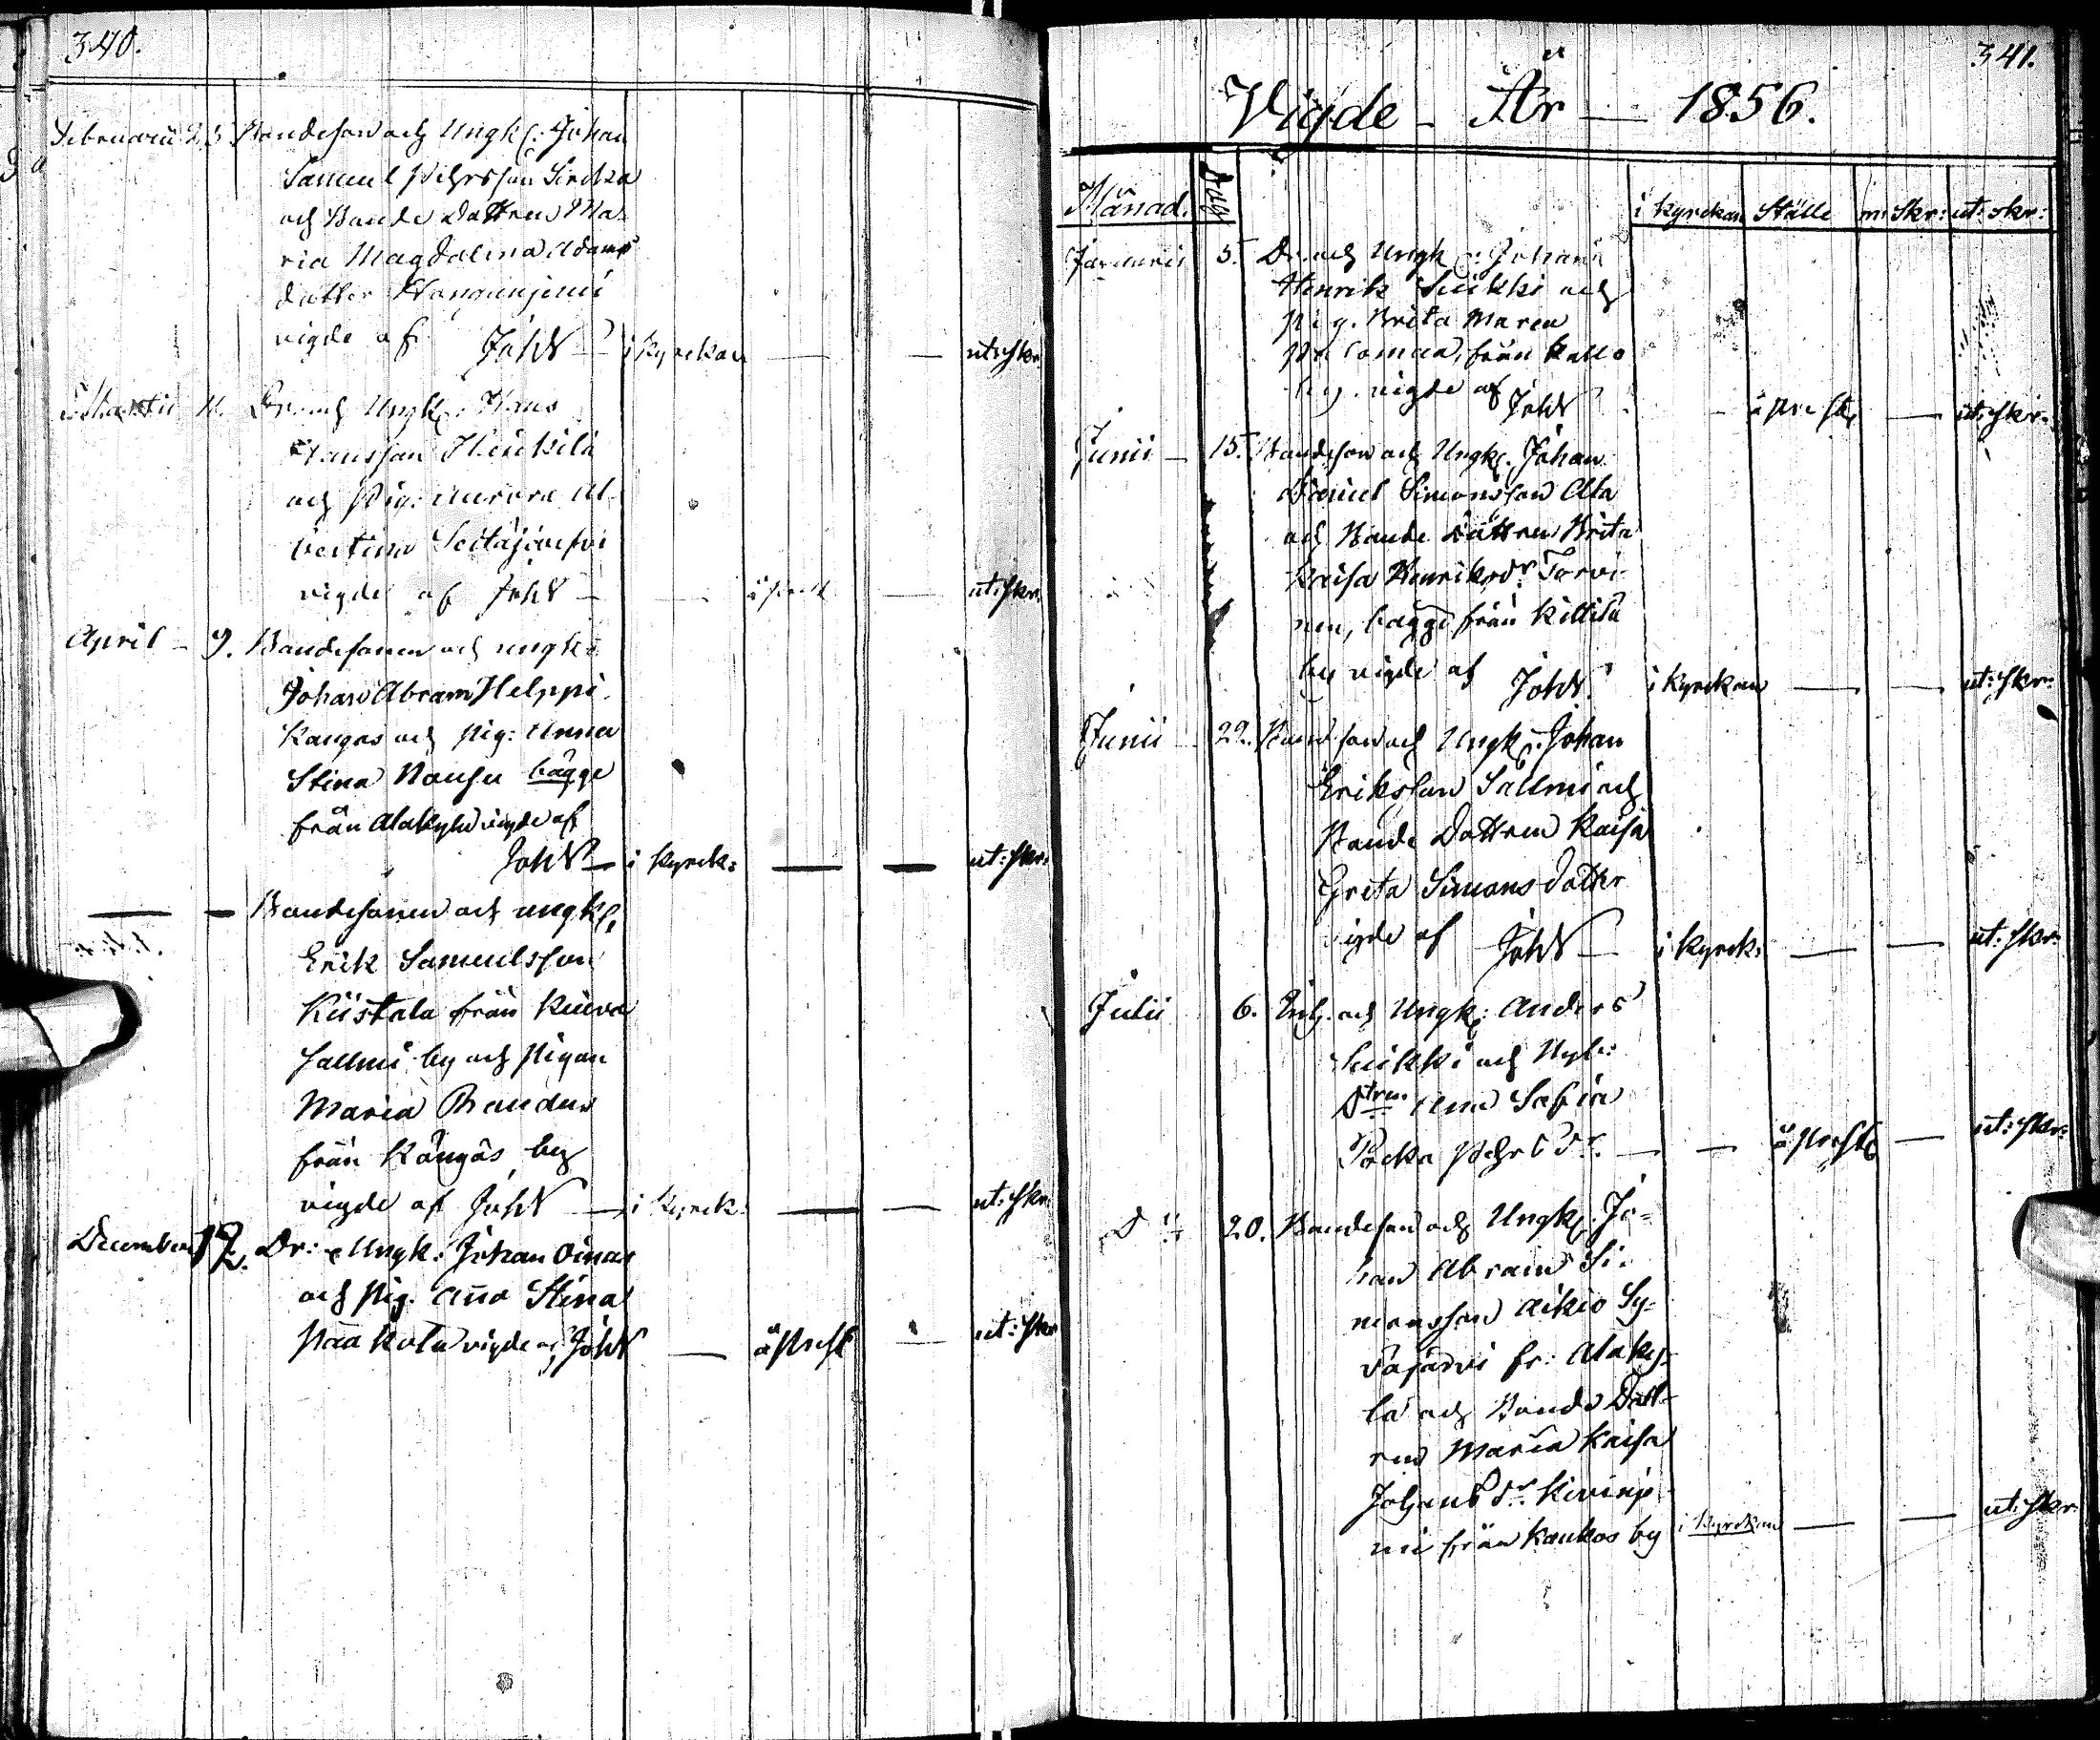 340.
Februarii 25. Bondeson och Ungk: Johan
Samuel Pehrsson Sirkka
och Bonde Dottren Ma
ria Magdalina Adams
dotter
vigde af JohW i Kyrckan — — ut:skr:
Martii 11. Dr. och Ungk: Hans
Hansson Heikilä
och Pig: Aurora Al
bertina Seitajärfvi
vigde af JohW — — ut:skr:
April — 9. Bondesonen och ungk:
Johan Abram Helppi
Kangas och Pig: Anna
Stina bägge
från Alakylä vigde af
JohW — i Kyrck: — — ut:skr:
— — Bondesonen och ungk:
Erik Samuelsson
Kiistala från Kuiva
sallmi by och Pigan
Maria
från Köngäs by
vigde af JohW — i Kyrck: — — ut:skr:
December 12. Dr: e Ungk: Johan Oinas
och Pig. Anna Stina
Paakola vigde af JohW — å Prest — ut:skr
341.
Vigde — År — 1856.
Månad. Dag i Kyrckan Ställe in:Skr: ut:skr:
Januarii 5. Dr. och Ungk: Johan
Henrik Suikki och
Pig. Brita Maria
från Kallo
by. vigde af JohW — å Prest — ut:skr:
Junii — 15. Bondeson och Ungk: Johan
Daniel Simonsson Ala
och Bonde Dottren Brita
Kaisa Henriksdr Torvi
nen, bägge från Kittilä
by vigde af JohW i Kyrckan — — ut:skr:
Junii — 29. Bondeson och Ungk: Johan
Eriksson Sallmi och
Bonde Dottren Kaisa
Greta Simons dotter
vigde af JohW — i Kyrck: — — ut:skr:
Julii 6. Enk. och Ungk: Anders
Suikki och Nyb:
Dtren Ana Safia
Pokka Pehrs Dr. — — å Prest — ut:skr:
D:o 20. Bondeson och Ungk: Jo=
han Abram Si=
monsson Aikio Sy=
väjärvi fr: Alaky=
lä och Bonde Dott=
ren Maria Kaisa
Johans Dr. Kivinie
mi från Kaukos by i Kyrckan — — ut:skr: